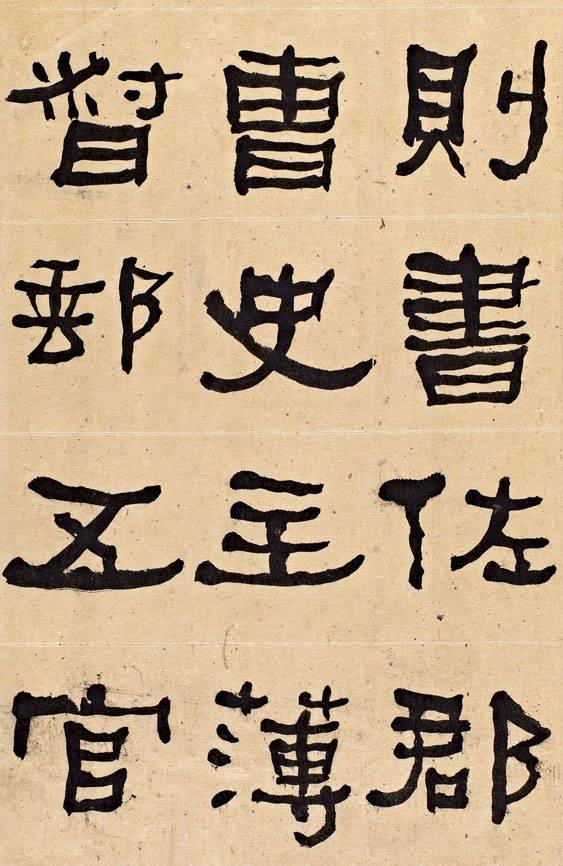 則書佐郡
曹史主薄
督郵五官